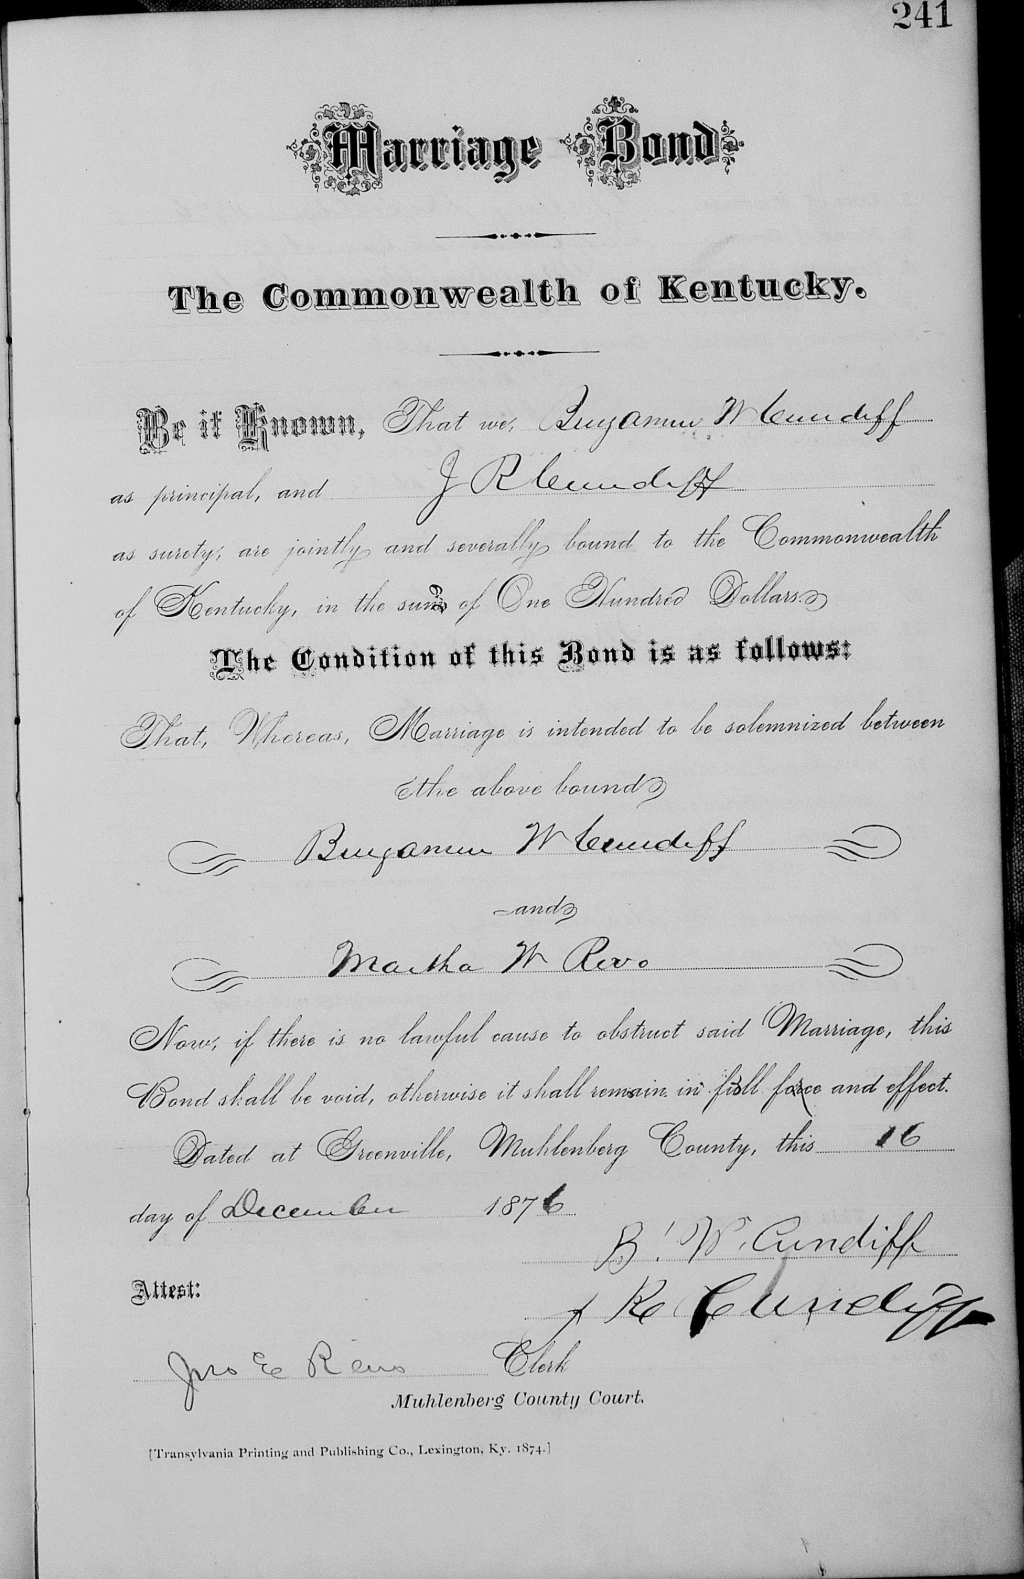 241
Marriage Bond
The Commonwealth of Kentucky.
Be it Known, That we, Benjamin W Cundiff
as principal, and J R Cundiff
as surety, are jointly and severally bound to the Commonwealth
of Kentucky, in the sum of One Hundred Dollars.
The Condition of this Bond is as follows:
That, Whereas, Marriage is intended to be solemnized between
the above bound
Benjamin W Cundiff
and
Martha W Reno
Now, if there is no lawful cause to obstruct said Marriage, this
Bond shall be void, otherwise it shall remain in full force and effect.
Dated at Greenville, Muhlenberg County, this 16
day of December 1876
B. W. Cundiff
Attest:
J R Cundiff
Jno E Reno Clerk
Muhlenberg County Court.
[Transylvania Printing and Publishing Co., Lexington, Ky. 1874.]